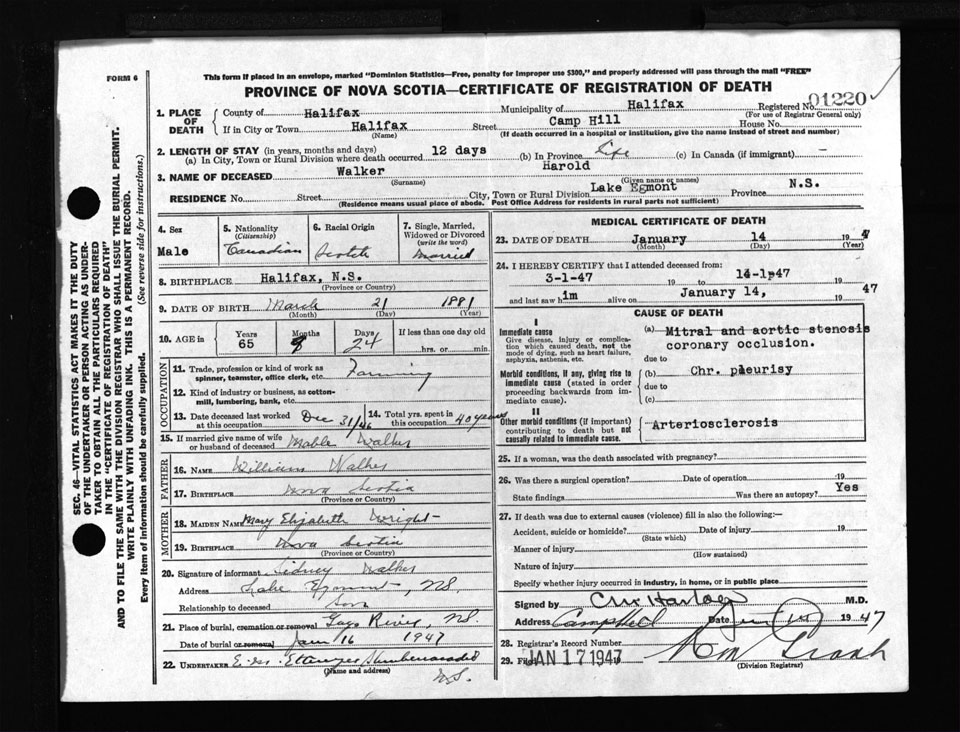 FORM 6
This form if placed in an envelope, marked "Dominion Statistics—Free, penalty for improper use $300," and properly addressed will pass through the mail "FREE"
PROVINCE OF NOVA SCOTIA—CERTIFICATE OF REGISTRATION OF DEATH
SEC. 46—VITAL STATISTICS ACT MAKES IT THE DUTY
OF THE UNDERTAKER OR PERSON ACTING AS UNDER-
TAKER TO OBTAIN ALL THE PARTICULARS REQUIRED
IN THE "CERTIFICATE OF REGISTRATION OF DEATH"
AND TO FILE THE SAME WITH THE DIVISION REGISTRAR WHO SHALL ISSUE THE BURIAL PERMIT.
WRITE PLAINLY WITH UNFADING INK. THIS IS A PERMANENT RECORD.
Every item of Information should be carefully supplied. (See reverse side for instructions.)
1. PLACE OF DEATH
County of Halifax Municipality of Halifax Registered No. 01220
(For use of Registrar General only)
If in City or Town Halifax Street Camp Hill House No.
(Name) (If death occurred in a hospital or institution, give the name instead of street and number)
2. LENGTH OF STAY (in years, months and days)
(a) In City, Town or Rural Division where death occurred 12 days (b) In Province Life (c) In Canada (if immigrant) —
3. NAME OF DECEASED Walker Harold
(Surname) (Given name or names)
RESIDENCE No. Street City, Town or Rural Division Lake Egmont Province N.S.
(Residence means usual place of abode. Post Office Address for residents in rural parts not sufficient)
4. Sex Male
5. Nationality (Citizenship) Canadian
6. Racial Origin Scotch
7. Single, Married, Widowed or Divorced (write the word) Married
8. BIRTHPLACE Halifax, N.S.
(Province or Country)
9. DATE OF BIRTH March 21 1881
(Month) (Day) (Year)
10. AGE in Years 65 Months 9 Days 24 If less than one day old hrs. or min.
OCCUPATION
11. Trade, profession or kind of work as spinner, teamster, office clerk, etc. Farming
12. Kind of industry or business, as cotton-mill, lumbering, bank, etc.
13. Date deceased last worked at this occupation Dec 31/46
14. Total yrs. spent in this occupation 40 years
15. If married give name of wife or husband of deceased Mable Walker
FATHER
16. NAME William Walker
17. BIRTHPLACE Nova Scotia
(Province or Country)
MOTHER
18. MAIDEN NAME Mary Elizabeth Wright
19. BIRTHPLACE Nova Scotia
(Province or Country)
20. Signature of informant Sidney Walker
Address Lake Egmont, N.S.
Relationship to deceased Son
21. Place of burial, cremation or removal Gays River, N.S.
Date of burial or removal Jan 16 1947
22. UNDERTAKER
(Name and address)
N.S.
MEDICAL CERTIFICATE OF DEATH
23. DATE OF DEATH January 14 194
(Month) (Day) (Year)
24. I HEREBY CERTIFY that I attended deceased from:
3-1-47 19 to 14-1-47 19
and last saw him alive on January 14, 1947
CAUSE OF DEATH
I
Immediate cause
Give disease, injury or complication which caused death, not the mode of dying, such as heart failure, asphyxia, asthenia, etc.
(a) Mitral and aortic stenosis
coronary occlusion.
due to
Morbid conditions, if any, giving rise to immediate cause (stated in order proceeding backwards from immediate cause).
(b) Chr. pleurisy
due to
(c)
II
Other morbid conditions (if important) contributing to death but not causally related to immediate cause.
Arteriosclerosis
25. If a woman, was the death associated with pregnancy?
26. Was there a surgical operation? Date of operation 19
State findings Was there an autopsy? Yes
27. If death was due to external causes (violence) fill in also the following:—
Accident, suicide or homicide? Date of injury 19
(State which)
Manner of injury
(How sustained)
Nature of injury
Specify whether injury occurred in industry, in home, or in public place
Signed by M.D.
Address Date 1947
28. Registrar's Record Number
29. Filed JAN 17 1947
(Division Registrar)